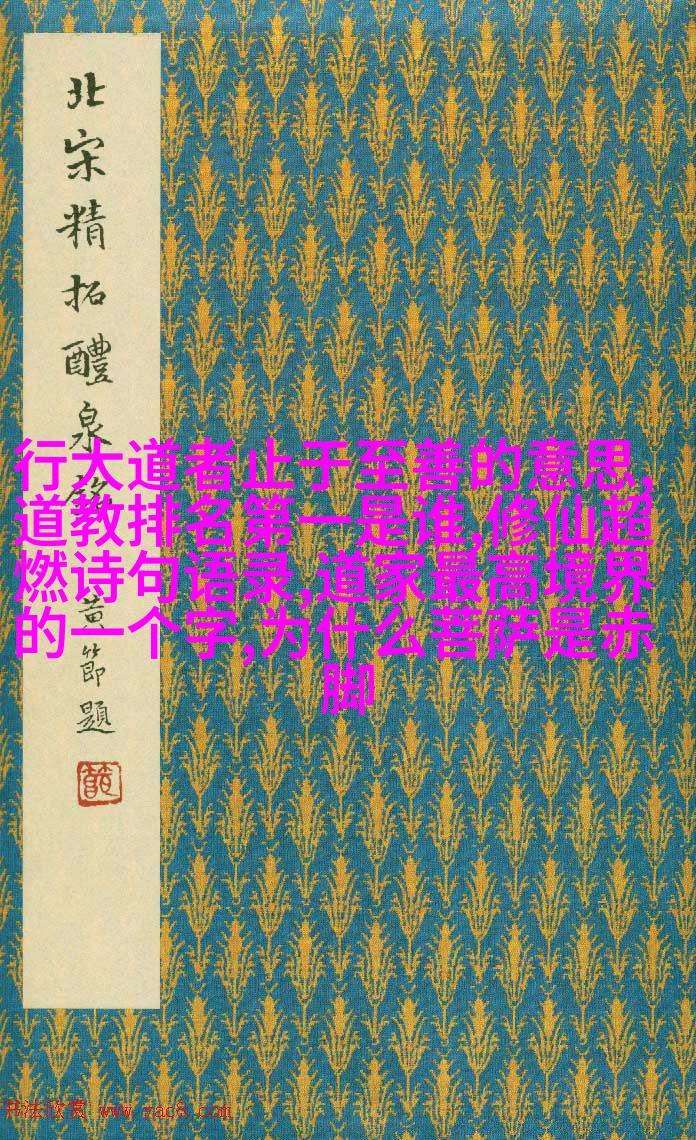 北宋精拓醴泉銘
黄節題
行大道者止于至善的意思,
道教排名第一是谁,修仙超
燃诗句语录,道家最高境界
的一个字,为什么菩萨是赤
脚
书法欣赏 www.yac8.com